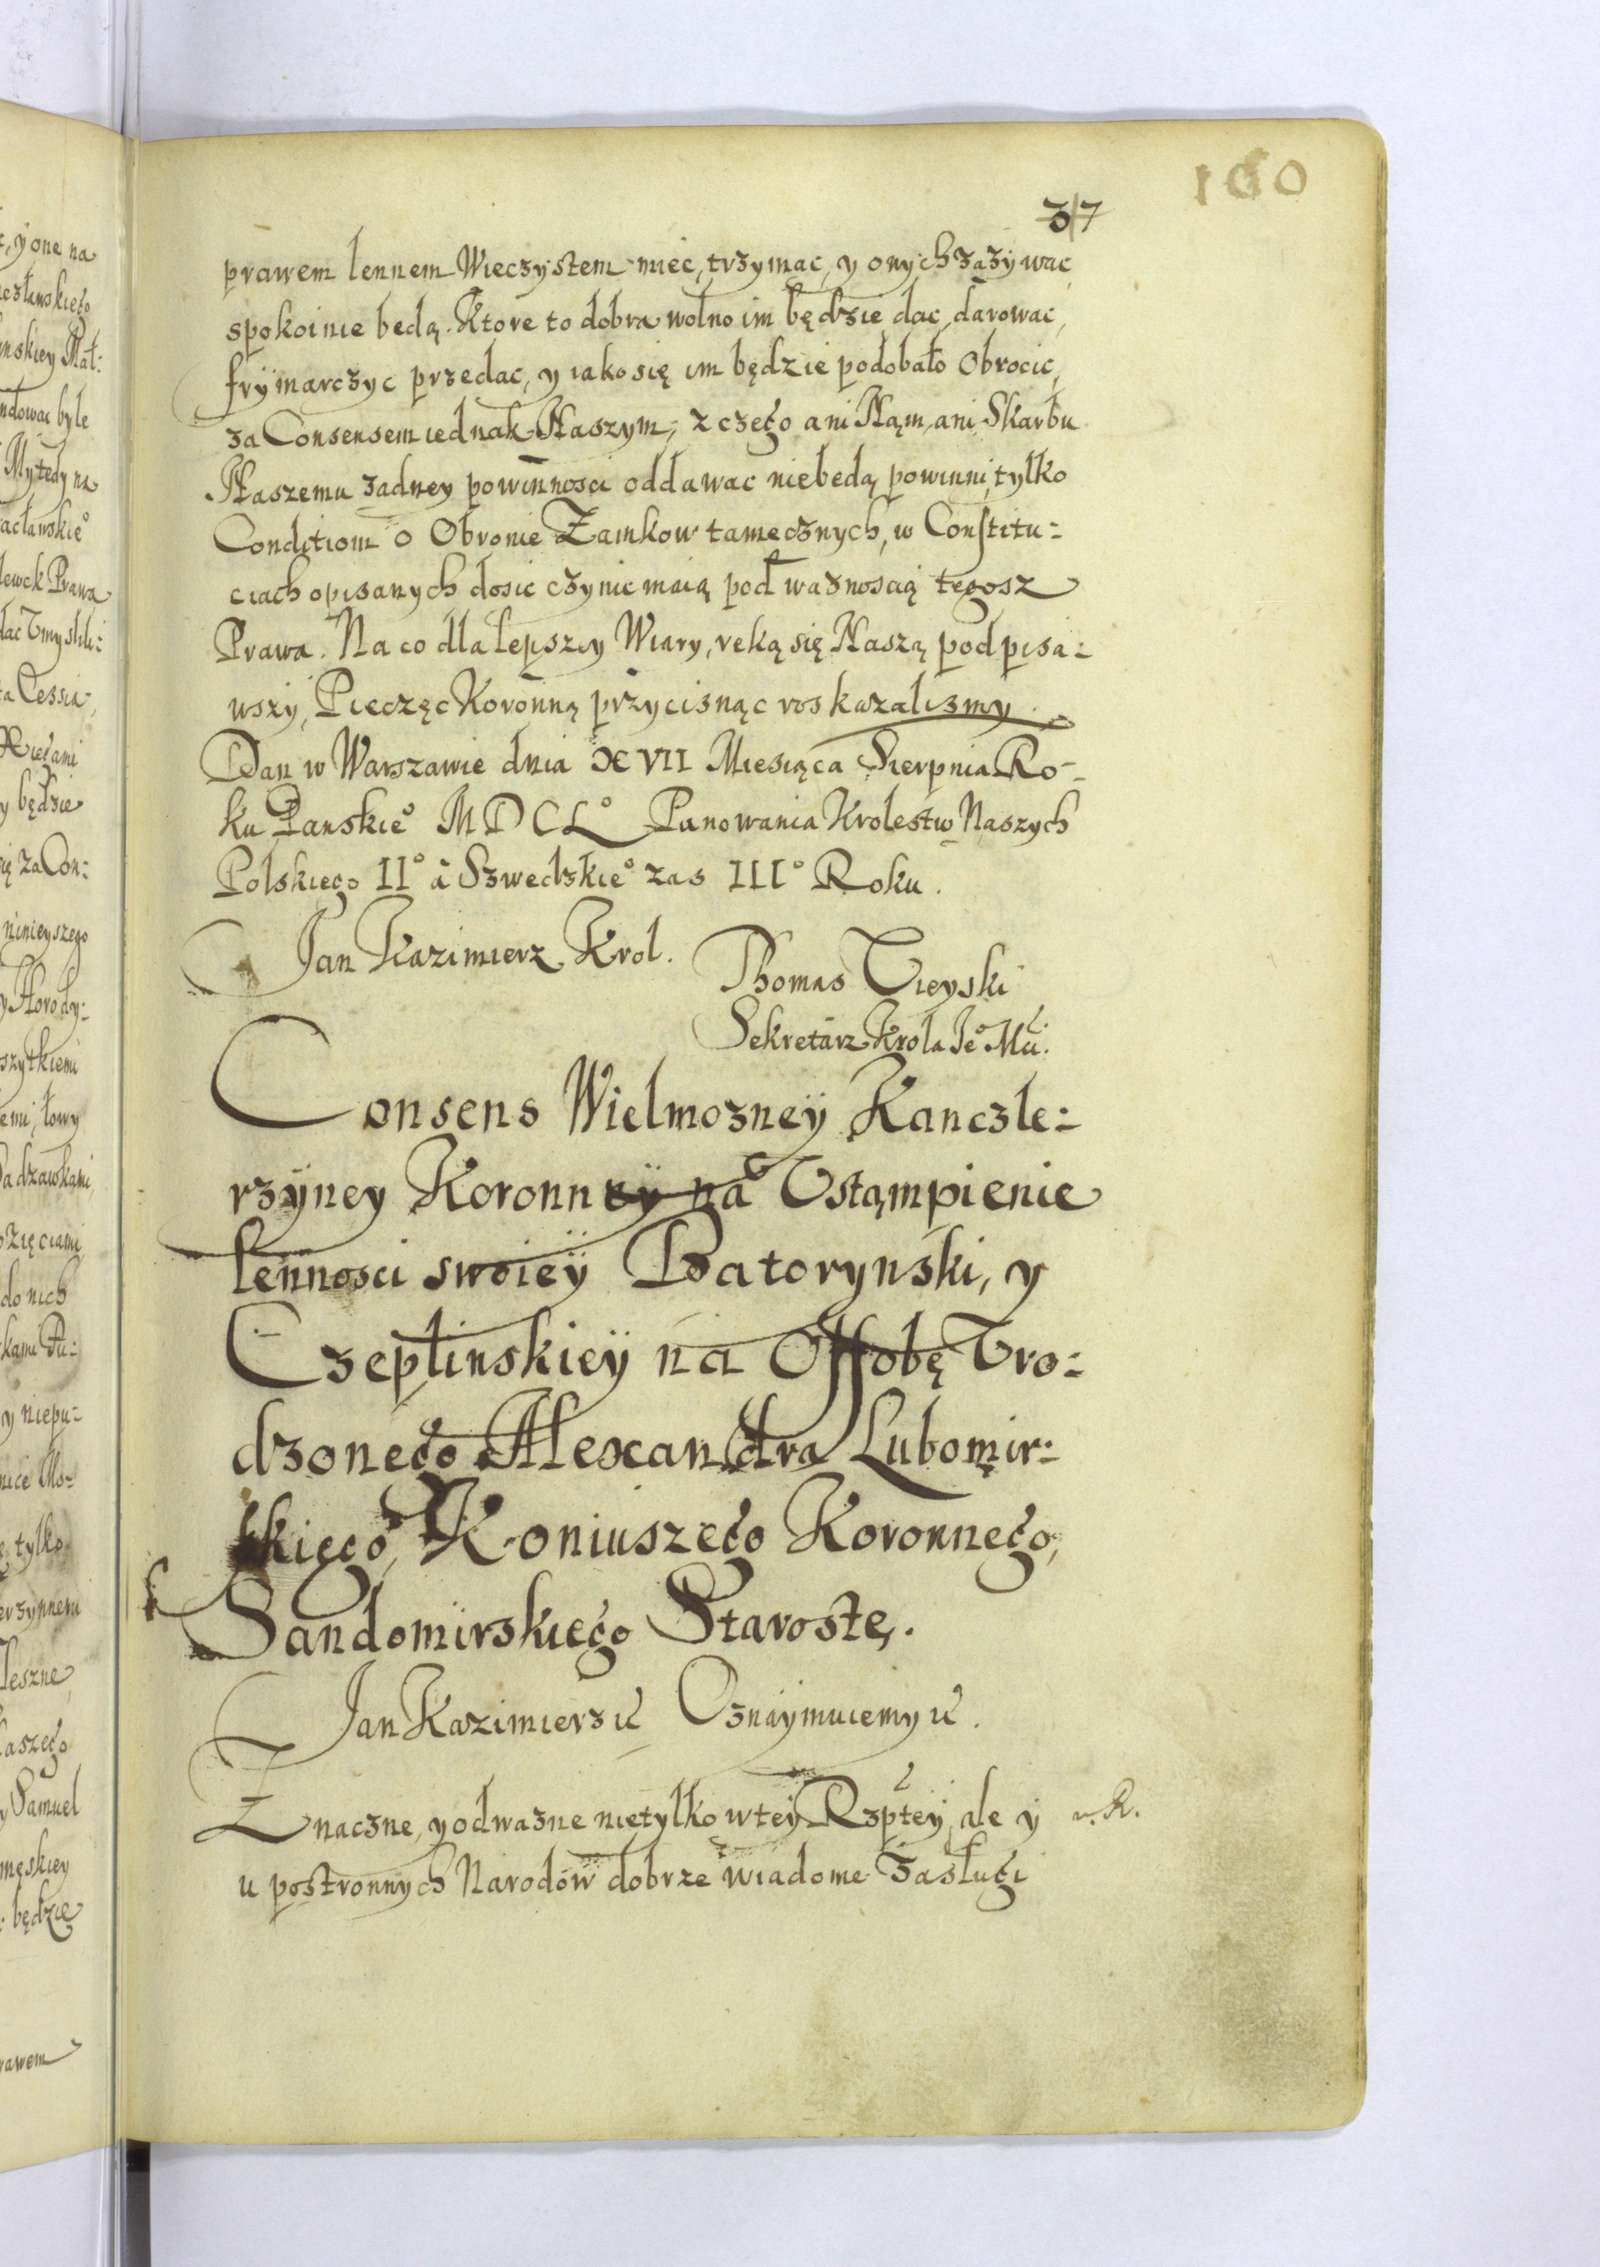 160
37
prawem lennem Wieczystem miec, trzymac, y onych zazywac
spokoinie będą. Ktore to dobra wolno im będzie dac, darowac,
frÿmarczyc przedac, y iako się im będzie podobało Obrocic,
za Consensem iednak Naszym, z czego ani Nąm, ani Skarbu
Naszemu zadney powinnosci oddawac niebedą powinni, tylko
Conditiom o Obronie Zamkow tamecznych, w Constitu=
ciach opisanych dosic czynic maią pod waznoscią tegosz
Prawa. Na co dla lepszey Wiary, ręką się Naszą podpisa=
wszy, Pieczęc Koronną przycisnąc roskazalismy.
Dan w Warszawie dnia XVII Miesiąca Sierpnia Ro=
ku Panskie° MDCL° Panowania Krolestw Naszych
Polskiego II° à Szwedzkie° zas III° Roku.
Jan Kazimierz Krol.
Thomas Uieyski
Sekretarz Krola Je° Mci.
Consens Wielmozneÿ Kanczle=
rzÿney Koronney na Ustąmpienie
lennosci swoieÿ Batorynski, y
Czeplinskieÿ na Ossobę Uro=
dzonego Alexandra Lubomir=
skiego, Koniuszego Koronnego,
Sandomirskiego Starostę.
Jan Kazimierz &c Oznaymuiemy &c.
Znaczne, y odwazne nietylko w tey Rzptey, ale y
u postronnych Narodów dobrze wiadome Zasługi
y one na
będzie
się za Con=
ninieyszego
y Horody=
y niepu=
tylko
Samuel
będzie